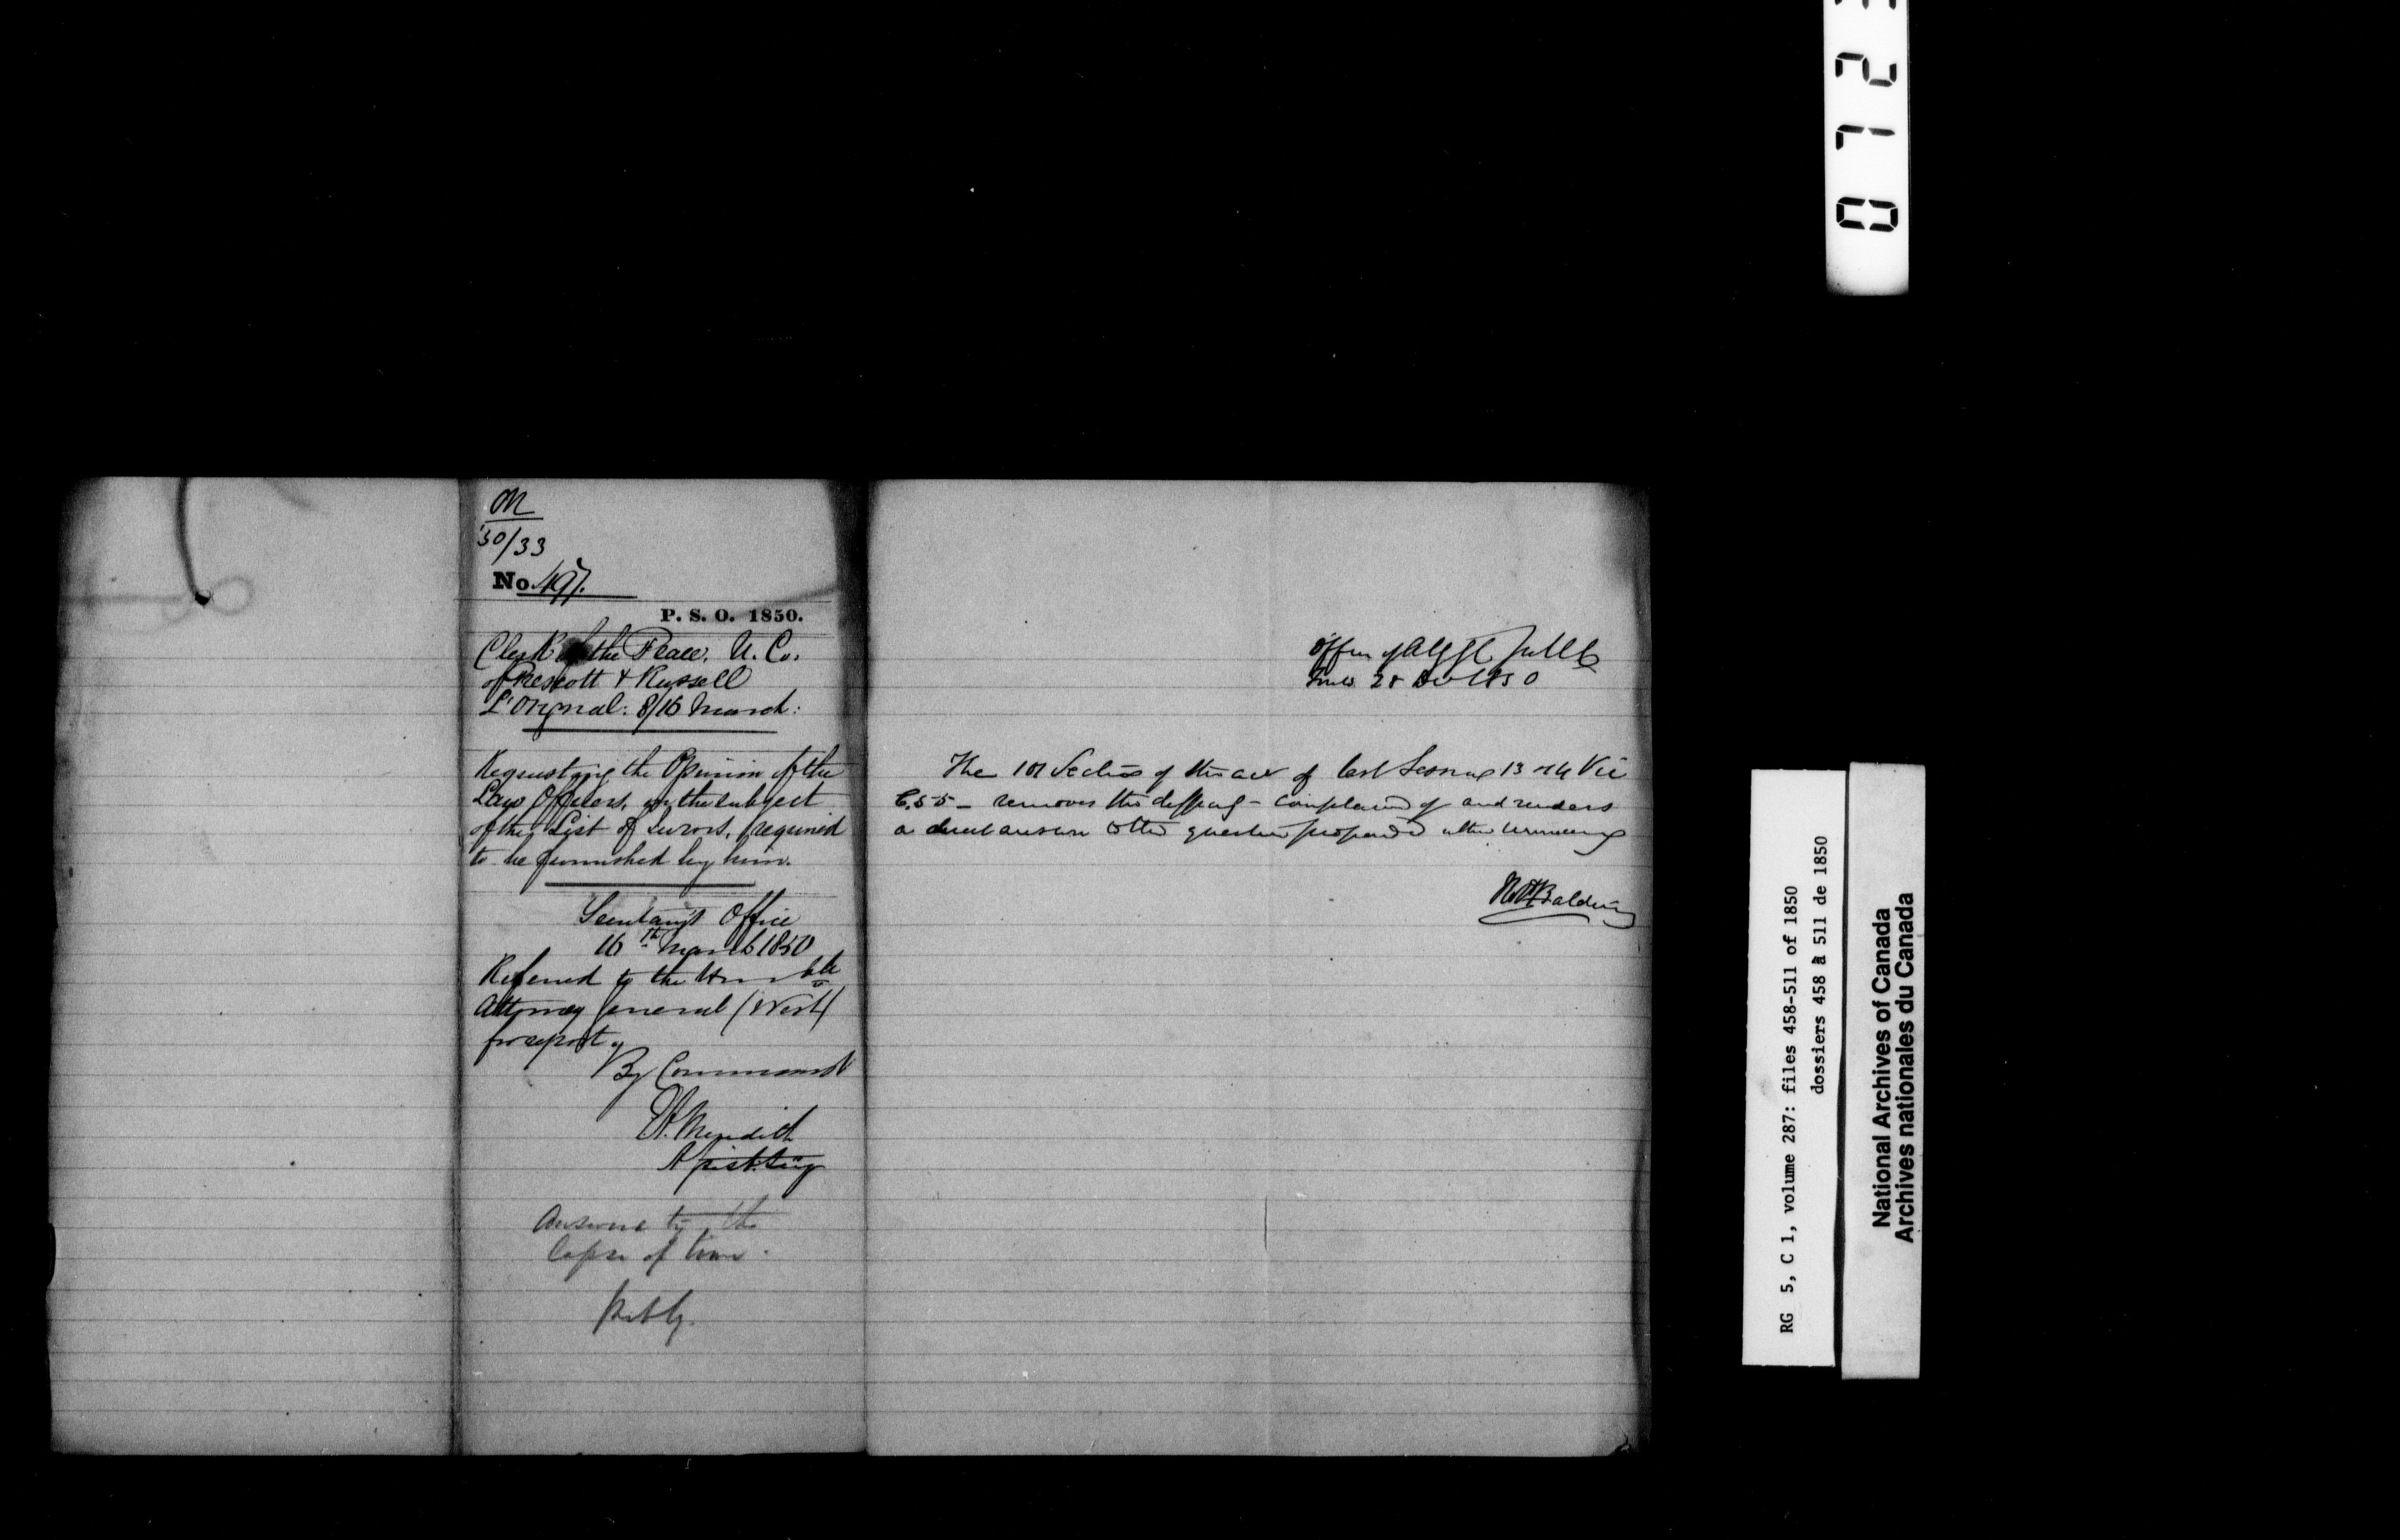 M
'50/33
No. 497.
P. S. O. 1850.
Clerk of the Peace, U. Co.
of Prescott & Russell
L'Orignal: 8/16 March:
Requesting the Opinion of the
Law Officers, on the subject
of the List of Jurors, required
to be furnished by him.
Secretary's Office
16th March 1850
Referred to the Honble
Attorney General (West)
for report.
By Command
Meredith
Answered by the
lapse of time.
Office of
28 1850
The 101 Section of the act of last Session 13 & 14 Vic
C. 55 - removes the difficulty complained of and renders
a direct answer to the question proposed unnecessary
Robt Baldwin
0 7 2
RG 5, C 1, volume 287: files 458-511 of 1850
dossiers 458 à 511 de 1850
National Archives of Canada
Archives nationales du Canada